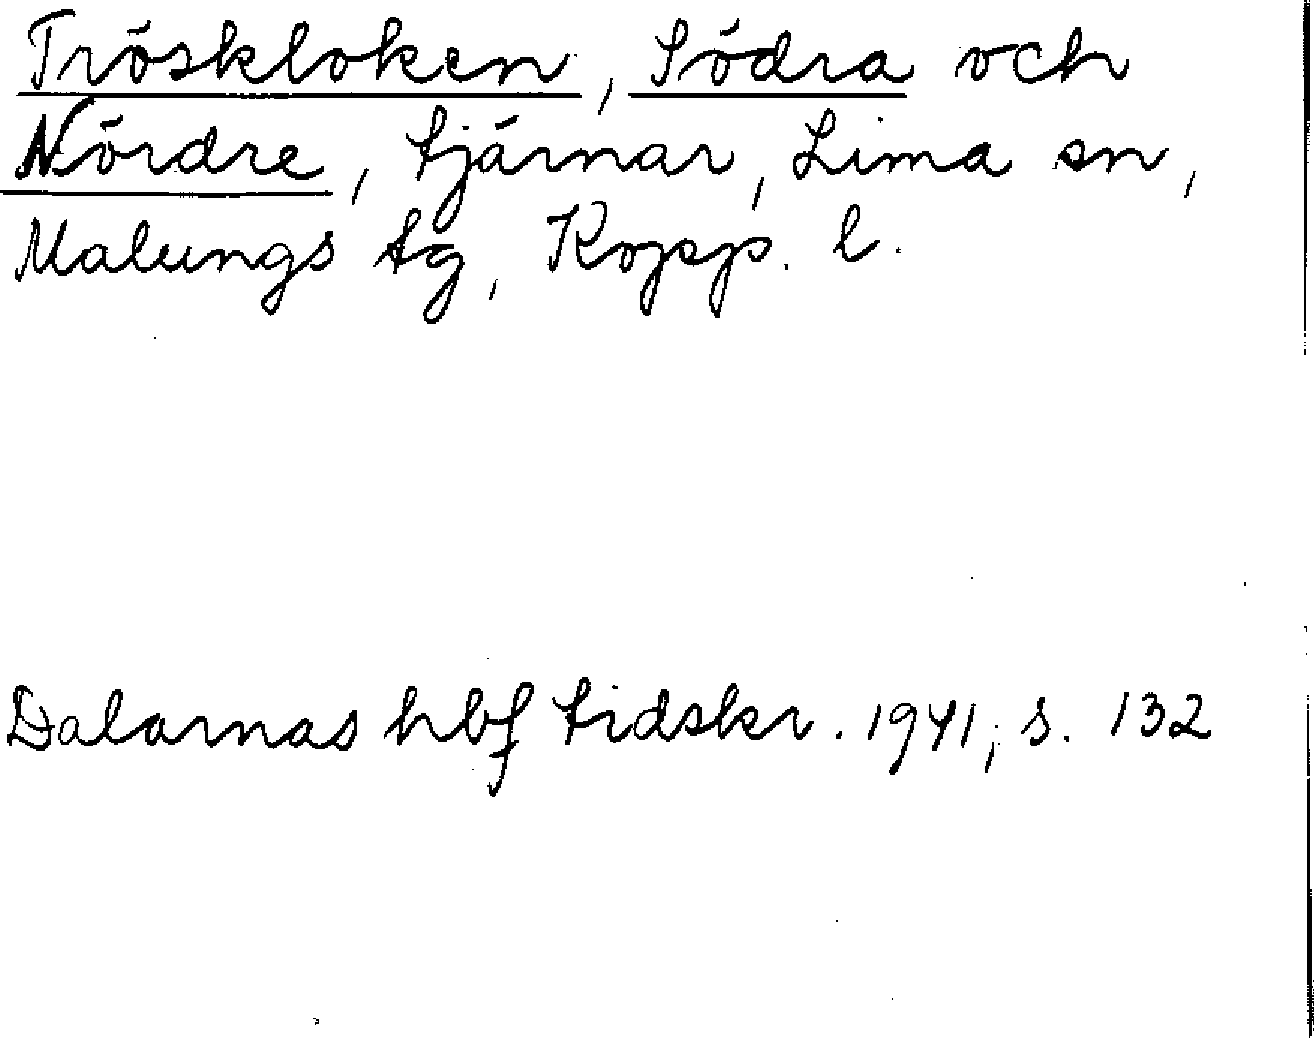 Tröskloken, Södra och
Nördre, tjärnar, Lima sn,
Malungs tg, Kopp. l.
Dalarnas hbf tidskr. 1941, s. 132